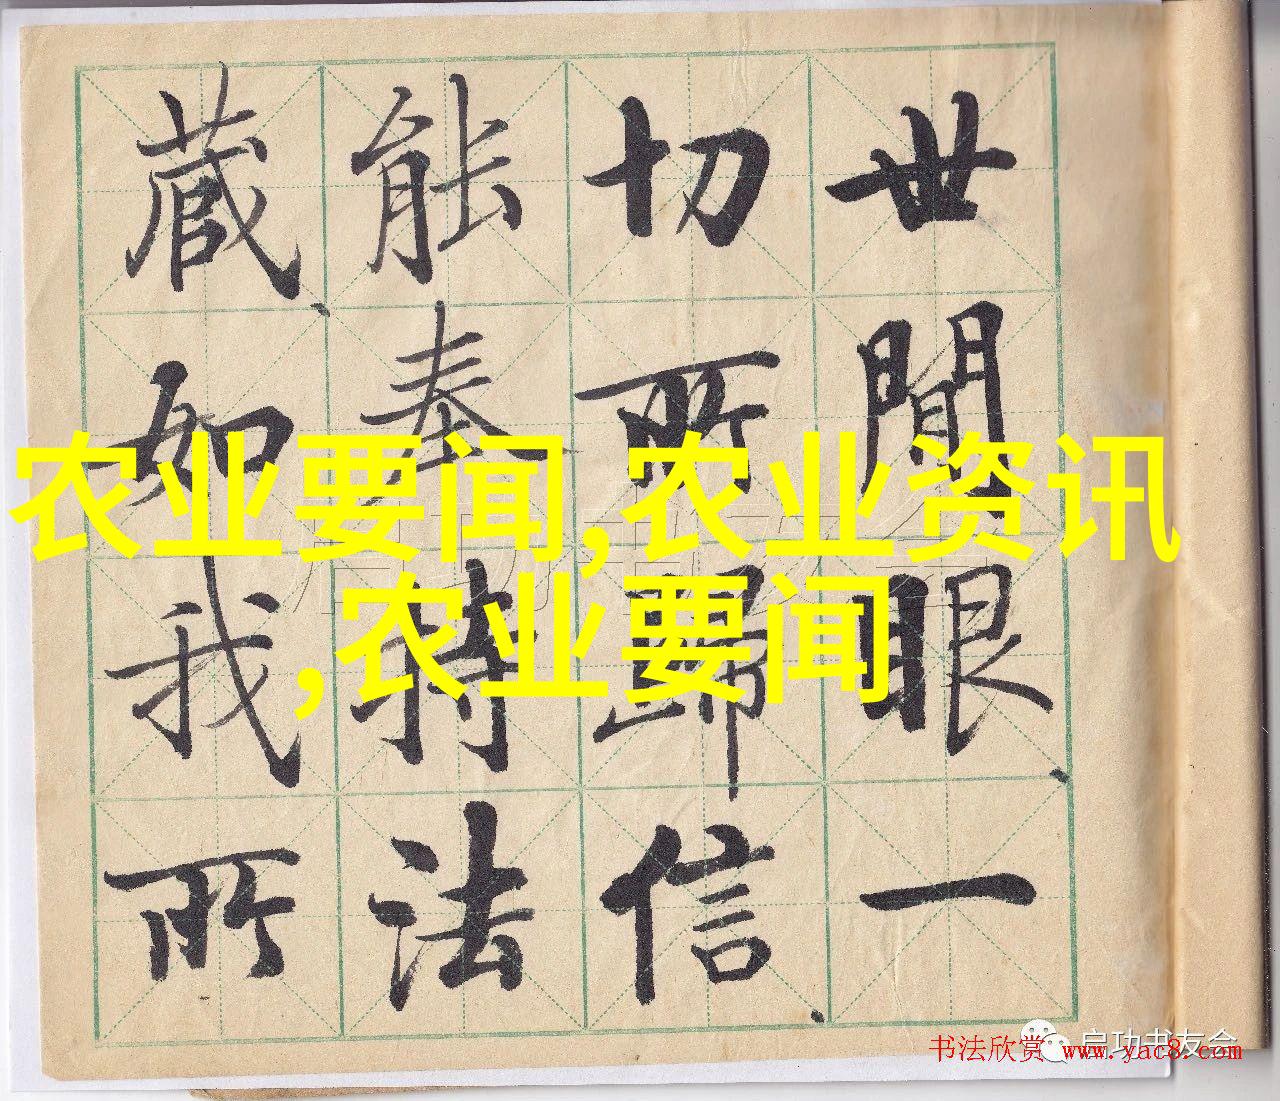 世間眼一
切所歸信
能奉持法
藏如我所
农业要闻,农业资讯
,农业要闻
启功书友会
书法欣赏 www.yac8.com